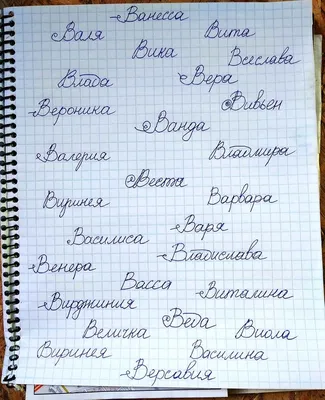 Ванесса
Валя Вита
Вика Всеслава
Влада Вера
Вероника Вивьен
Ванда
Валерия Владмира
Веста
Виринея Варвара
Варя
Василиса Владислава
Венера
Васса Виталина
Вирджиния
Веда
Величка Виола
Виринея Василина
Версавия